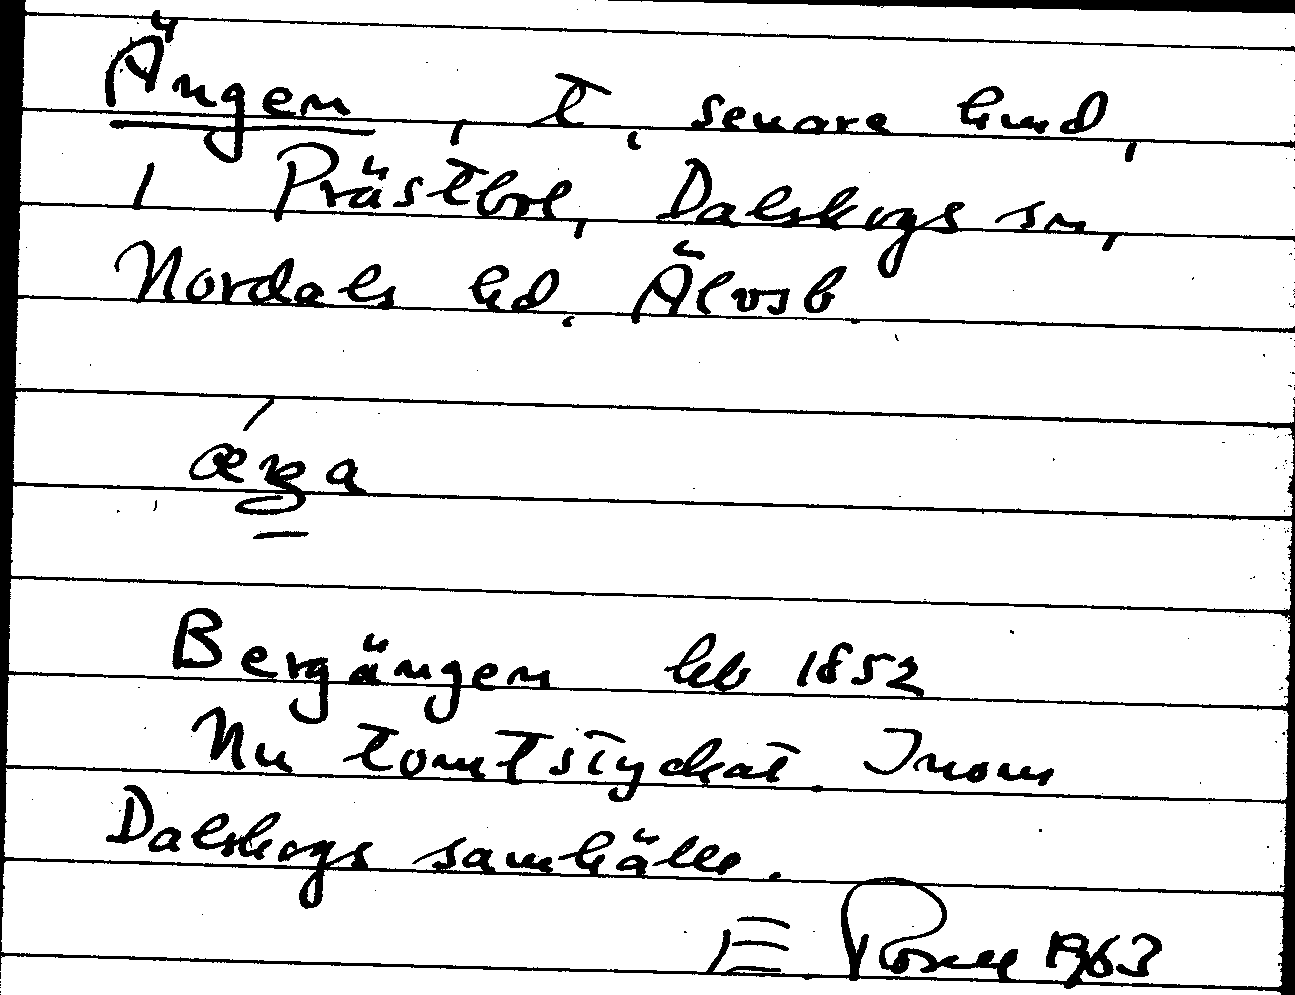 Ängen, t. senare hmd,
i Prästbol, Dalskogs sn,
Nordals hd. Älvsb.
Bergängen hb 1852
Nu tomtstyckat. Inom
Dalskogs samhälle.
E. 1963